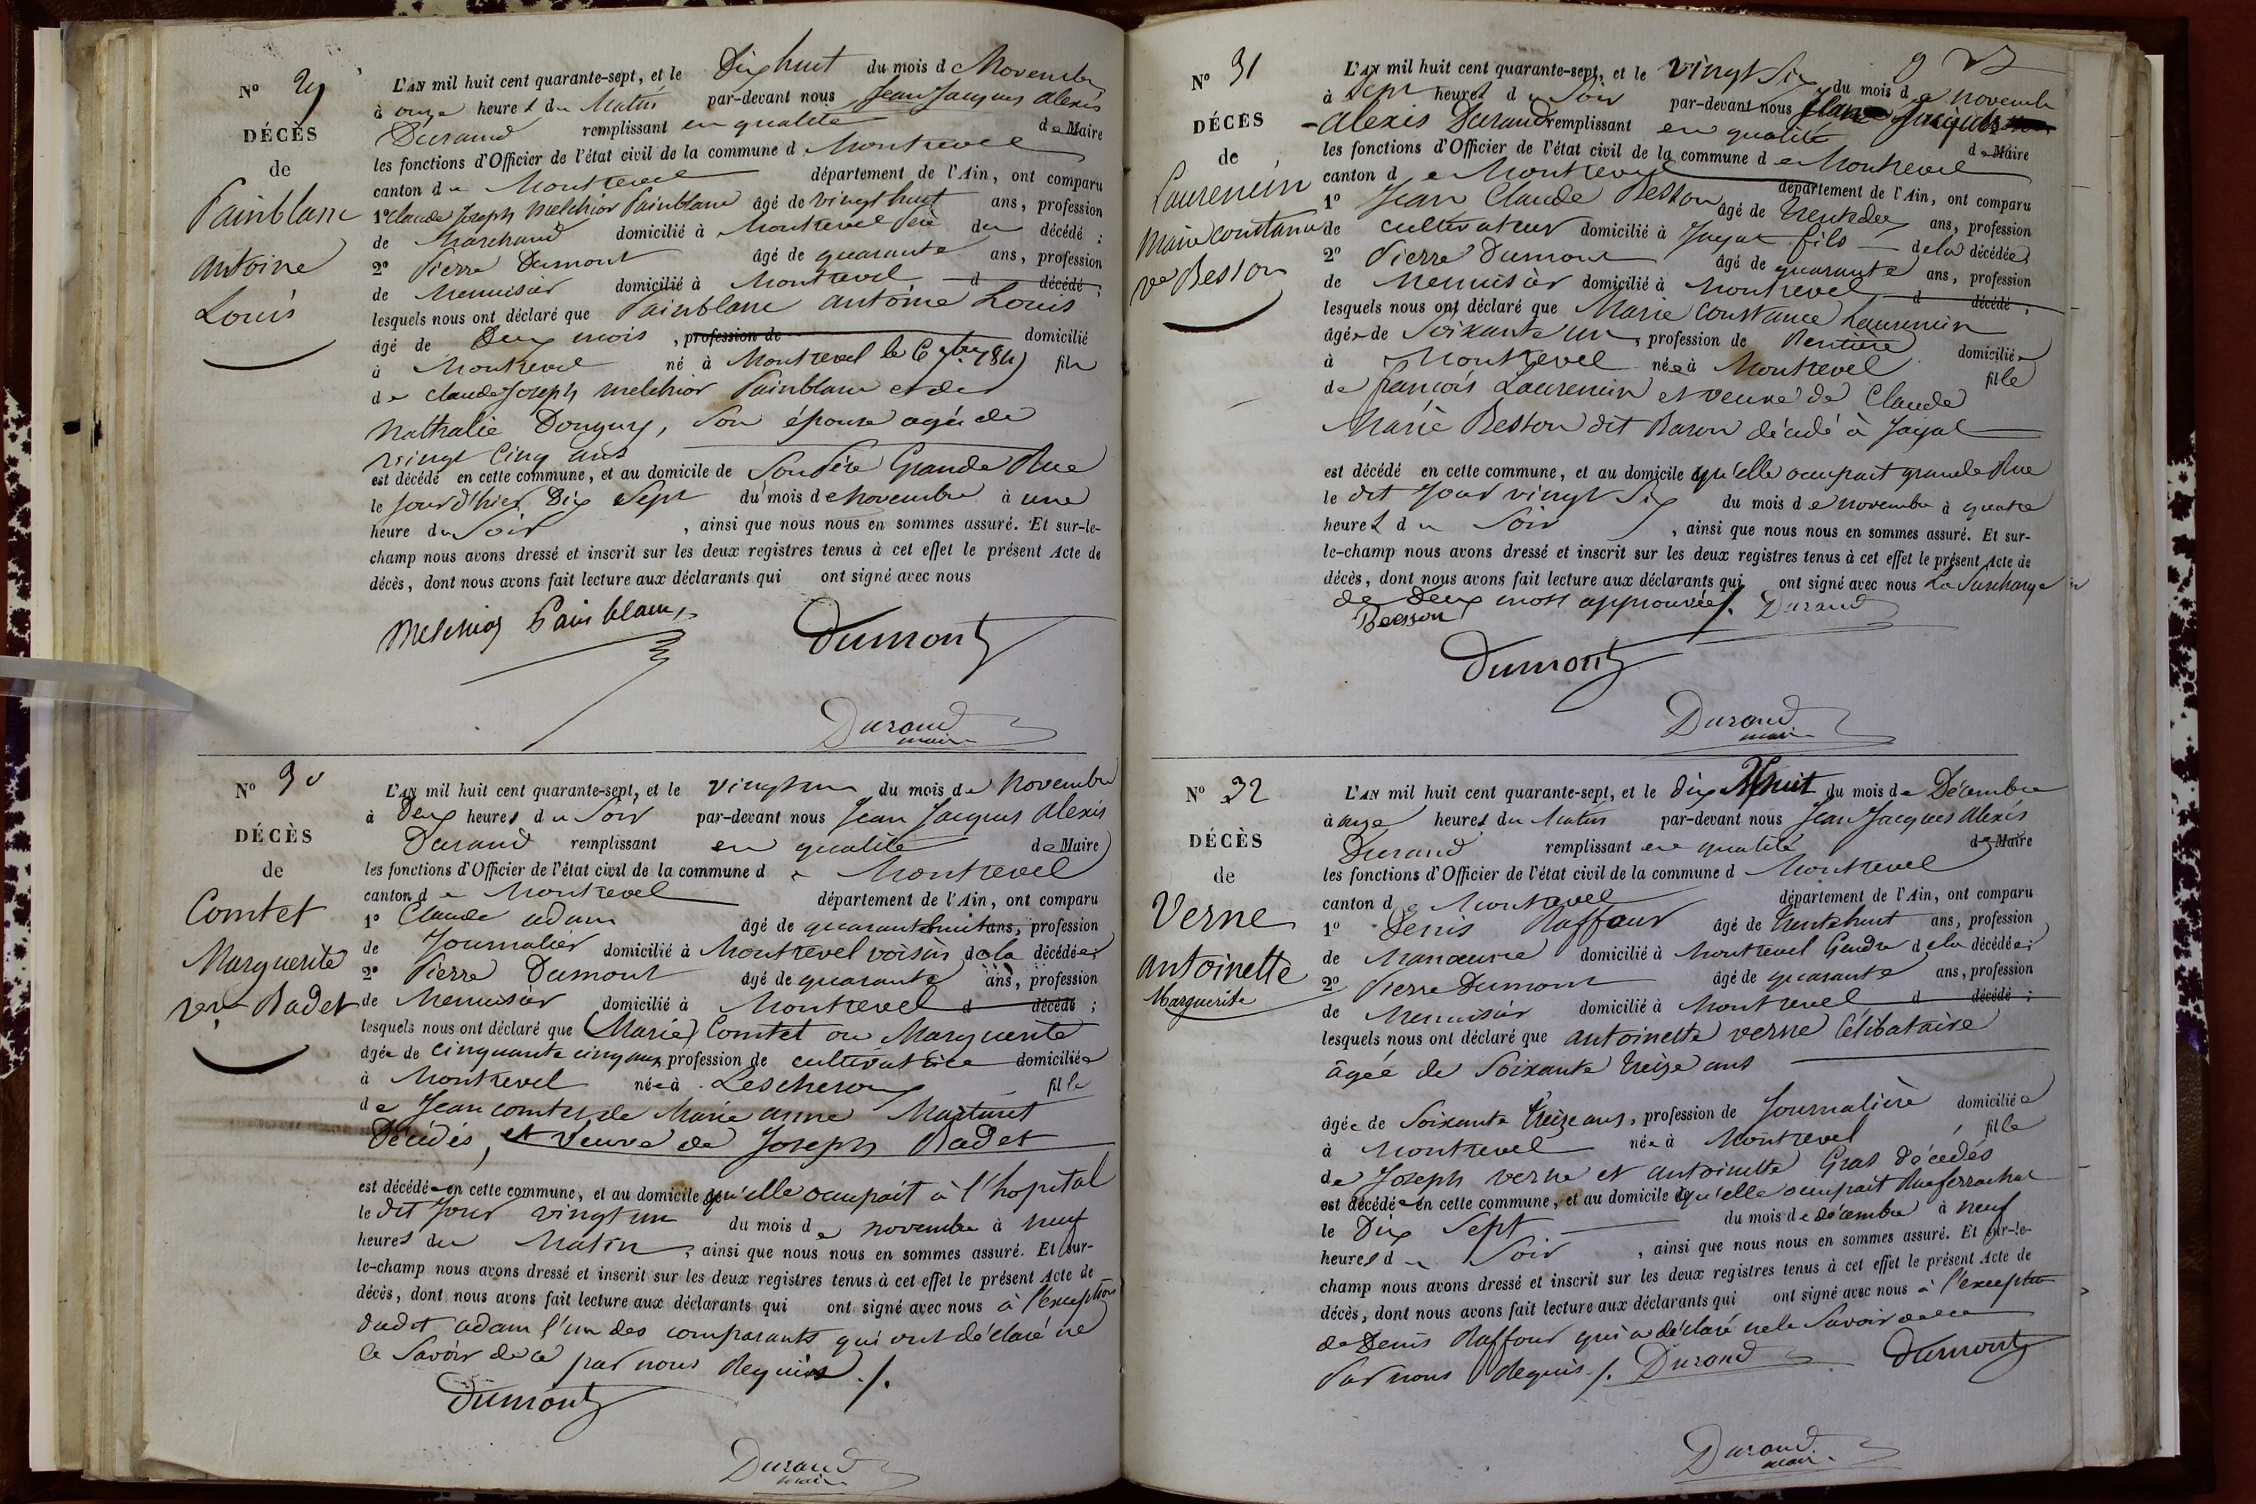 N° 29
DÉCÈS
de
Painblanc
Antoine
Louis
L'AN mil huit cent quarante-sept, et le Dix huit du mois de Novembre
à onze heures du Matin par-devant nous Jean Jacques Alexis
Durand remplissant en qualité de Maire
les fonctions d'Officier de l'état civil de la commune d Montrevel
canton de Montrevel département de l'Ain, ont comparu
1° Claude Joseph Melchior Painblanc âgé de vingt huit ans, profession
de Marchand domicilié à Montrevel Père du décédé ;
2° Pierre Dumont âgé de quarante ans, profession
de Menuisier domicilié à Montrevel d décédé ;
lesquels nous ont déclaré que Painblanc Antoine Louis
âgé de Deux mois, profession de domicilié
à Montrevel né à Montrevel le 6 7bre 1847 fils
de Claude Joseph Melchior Painblanc et de
Nathalie Donguy, son épouse agée de
vingt cinq ans
est décédé en cette commune, et au domicile de Son Père Grande Rue
le Jour d'hier Dix Sept du mois de Novembre à une
heure du Soir, ainsi que nous nous en sommes assuré. Et sur-le-
champ nous avons dressé et inscrit sur les deux registres tenus à cet effet le présent Acte de
décès, dont nous avons fait lecture aux déclarants qui ont signé avec nous
Melchior Painblanc
Dumont
Durand
maire
N° 30
DÉCÈS
de
Comtet
Marguerite
ve Badet
L'AN mil huit cent quarante-sept, et le vingt un du mois de Novembre
à Deux heures du Soir par-devant nous Jean Jacques Alexis
Durand remplissant en qualité de Maire
les fonctions d'Officier de l'état civil de la commune de Montrevel
canton de Montrevel département de l'Ain, ont comparu
1° Claude Adam âgé de quarante huit ans, profession
de Journalier domicilié à Montrevel voisin de la décédée ;
2° Pierre Dumont âgé de quarante ans, profession
de Menuisier domicilié à Montrevel d décédé ;
lesquels nous ont déclaré que (Marie) Comtet ou Marguerite
âgée de cinquante cinq ans, profession de cultivatrice domiciliée
à Montrevel née à Lescheroux fille
de Jean Comtet de Marie Anne Maituret
Décédés, et Veuve de Joseph Badet
est décédée en cette commune, et au domicile qu'elle occupait à l'hopital
le dit Jour vingt un du mois de novembre à neuf
heures du Matin, ainsi que nous nous en sommes assuré. Et sur-
le-champ nous avons dressé et inscrit sur les deux registres tenus à cet effet le présent Acte de
décès, dont nous avons fait lecture aux déclarants qui ont signé avec nous à l'exception
dudit Adam l'un des comparants qui ont déclaré ne
le Savoir de ce par nous Requis ./.
Dumont
Durand
maire
N° 31
DÉCÈS
de
Laurencin
Marie Constance
ve Besson
L'AN mil huit cent quarante-sept, et le vingt Six du mois de novembre
à Sept heures du Soir par-devant nous Jean Jacques
Alexis Durand remplissant en qualité de Maire
les fonctions d'Officier de l'état civil de la commune de Montrevel
canton de Montrevel département de l'Ain, ont comparu
1° Jean Claude Besson âgé de trente deux ans, profession
de cultivateur domicilié à Jayat fils de la décédée ;
2° Pierre Dumont âgé de quarante ans, profession
de Menuisier domicilié à Montrevel d décédé ;
lesquels nous ont déclaré que Marie Constance Laurencin
âgée de Soixante un, profession de Rentière domiciliée
à Montrevel née à Montrevel fille
de françois Laurencin et veuve de Claude
Marie Besson dit Baron décédé à Jayat
est décédé en cette commune, et au domicile qu'elle occupait grande Rue
le dit Jour vingt Six du mois de novembre à quatre
heures du Soir, ainsi que nous nous en sommes assuré. Et sur-
le-champ nous avons dressé et inscrit sur les deux registres tenus à cet effet le présent Acte de
décès, dont nous avons fait lecture aux déclarants qui ont signé avec nous La Surcharge
de Deux mots approuvée ./. Durand
Besson
Dumont
Durand
maire
N° 32
DÉCÈS
de
Verne
Antoinette
Marguerite
L'AN mil huit cent quarante-sept, et le dix huit du mois de Décembre
à onze heures du Matin par-devant nous Jean Jacques Alexis
Durand remplissant en qualité de Maire
les fonctions d'Officier de l'état civil de la commune d Montrevel
canton de Montrevel département de l'Ain, ont comparu
1° Denis Raffour âgé de trente huit ans, profession
de Manœuvre domicilié à Montrevel Gendre de la décédée ;
2° Pierre Dumont âgé de quarante ans, profession
de Menuisier domicilié à Montrevel d décédé ;
lesquels nous ont déclaré que antoinette verne Célibataire
âgée de Soixante treize ans
âgée de Soixante treize ans, profession de Journalière domiciliée
à Montrevel née à Montrevel, fille
de Joseph verne et antoinette Gras décédés
est décédée en cette commune, et au domicile qu'elle occupait Rue ferrachat
le Dix Sept du mois de décembre à neuf
heures du Soir, ainsi que nous nous en sommes assuré. Et sur-le-
champ nous avons dressé et inscrit sur les deux registres tenus à cet effet le présent Acte de
décès, dont nous avons fait lecture aux déclarants qui ont signé avec nous à l'exception
de Denis Raffour qui a déclaré ne le Savoir de ce
Par nous Requis ./. Durand Dumont
Durand
maire